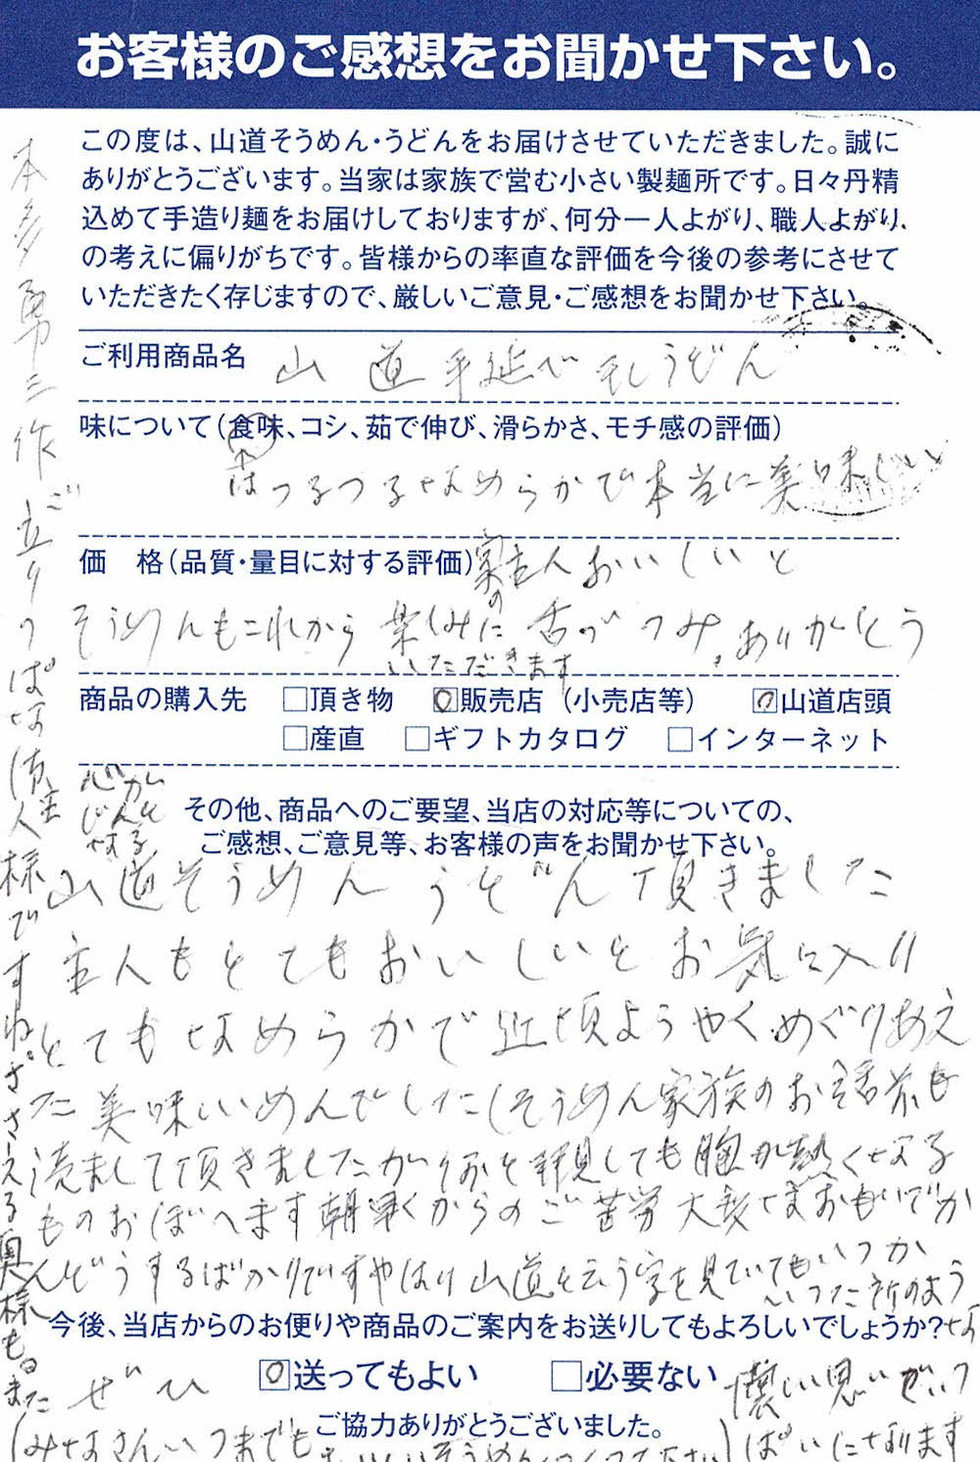 お客様のご感想をお聞かせ下さい。
この度は、山道そうめん・うどんをお届けさせていただきました。誠に
ありがとうございます。当家は家族で営む小さい製麺所です。日々丹精
込めて手造り麺をお届けしておりますが、何分一人よがり、職人よがり
の考えに偏りがちです。皆様からの率直な評価を今後の参考にさせて
いただきたく存じますので、厳しいご意見・ご感想をお聞かせ下さい。
ご利用商品名 山道手延べ干しうどん
味について(食味、コシ、茹で伸び、滑らかさ、モチ感の評価)
↑
はつるつるなめらかで本当に美味しい
価 格(品質・量目に対する評価) 主人おいしいと
そうめんもこれから楽しみに 舌づつみ ありがとう
いただきます
商品の購入先 □頂き物 □販売店(小売店等) □山道店頭
□産直 □ギフトカタログ □インターネット
その他、商品へのご要望、当店の対応等についての、
ご感想、ご意見等、お客様の声をお聞かせ下さい。
山道そうめん うどん頂きました
主人もとてもおいしいとお気に入り
とてもなめらかで近頃ようやくめぐりあえ
た美味しいめんでした(そうめん家族のお話前も
読まして頂きましたが を拝見しても胸が熱くなる
ものおぼへます朝早くからのご苦労大変なおもいでか
んどうするばかりですやはり山道と云う字を見ていてもいつか
いった所のよう
な
懐しい思いでいっ
ぱいになります
今後、当店からのお便りや商品のご案内をお送りしてもよろしいでしょうか?
□送ってもよい □必要ない
ぜひ
ご協力ありがとうございました。
(みなさんいつまでも おいしいそうめんつくって下さい)
本多勇三作
ごりっぱな
様ですね。ささえる奥様も。
また
心がかんじる